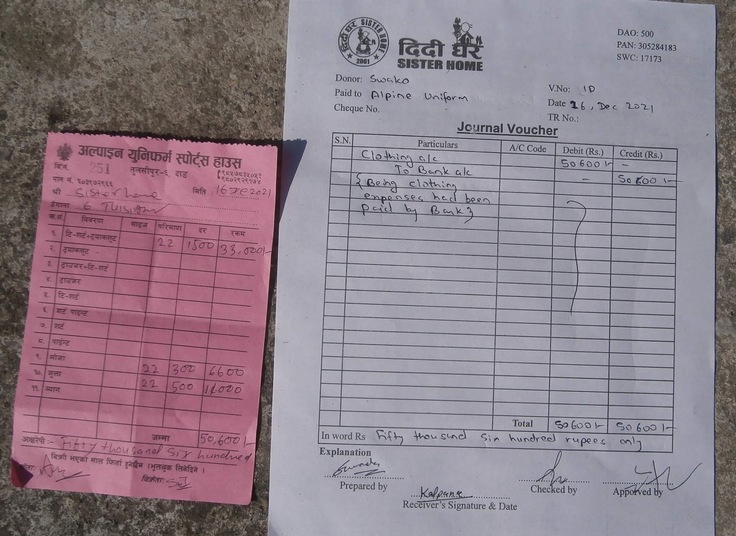 अल्पाइन युनिफर्म स्पोर्ट्स हाउस
तुलसीपुर-६, दाङ
बिल नं. 251
श्री Sister home
मिति 16 Dec 2021
ठेगाना 6 Tulsipur
क.सं. विवरण साइज परिमाण दर रकम
१. टि-सर्ट+ट्र्याकसुट 22 1500 33,000/-
२. ट्र्याकसुट
३. ट्राउजर+टि-सर्ट
४. ट्राउजर
५. टि-सर्ट
६. सर्ट पाइन्ट
७. सर्ट
८. पाइन्ट
९. मोजा 22 300 6600
१०. जुत्ता 22 500 11000
११. ब्याग
जम्मा 50,600/-
अक्षरेपी :- Fifty thousand six hundred
बिक्री भएको माल फिर्ता हुनेछैन (भुलचुक लिनेदिने)
SISTER HOME
2061
दिदी घर
SISTER HOME
DAO: 500
PAN: 305284183
SWC: 17173
Donor: Swako
V.No: 10
Paid to Alpine Uniform
Date 16, Dec 2021
Cheque No.
TR No.:
Journal Voucher
S.N. Particulars A/C Code Debit (Rs.) Credit (Rs.)
Clothing a/c 50600/- -
To Bank a/c - 50600/-
{Being clothing
expenses had been
paid by Bank}
Total 50600/- 50600/-
In word Rs Fifty thousand six hundred rupees only
Explanation
Prepared by
Kalpana
Receiver's Signature & Date
Checked by
Apporved by